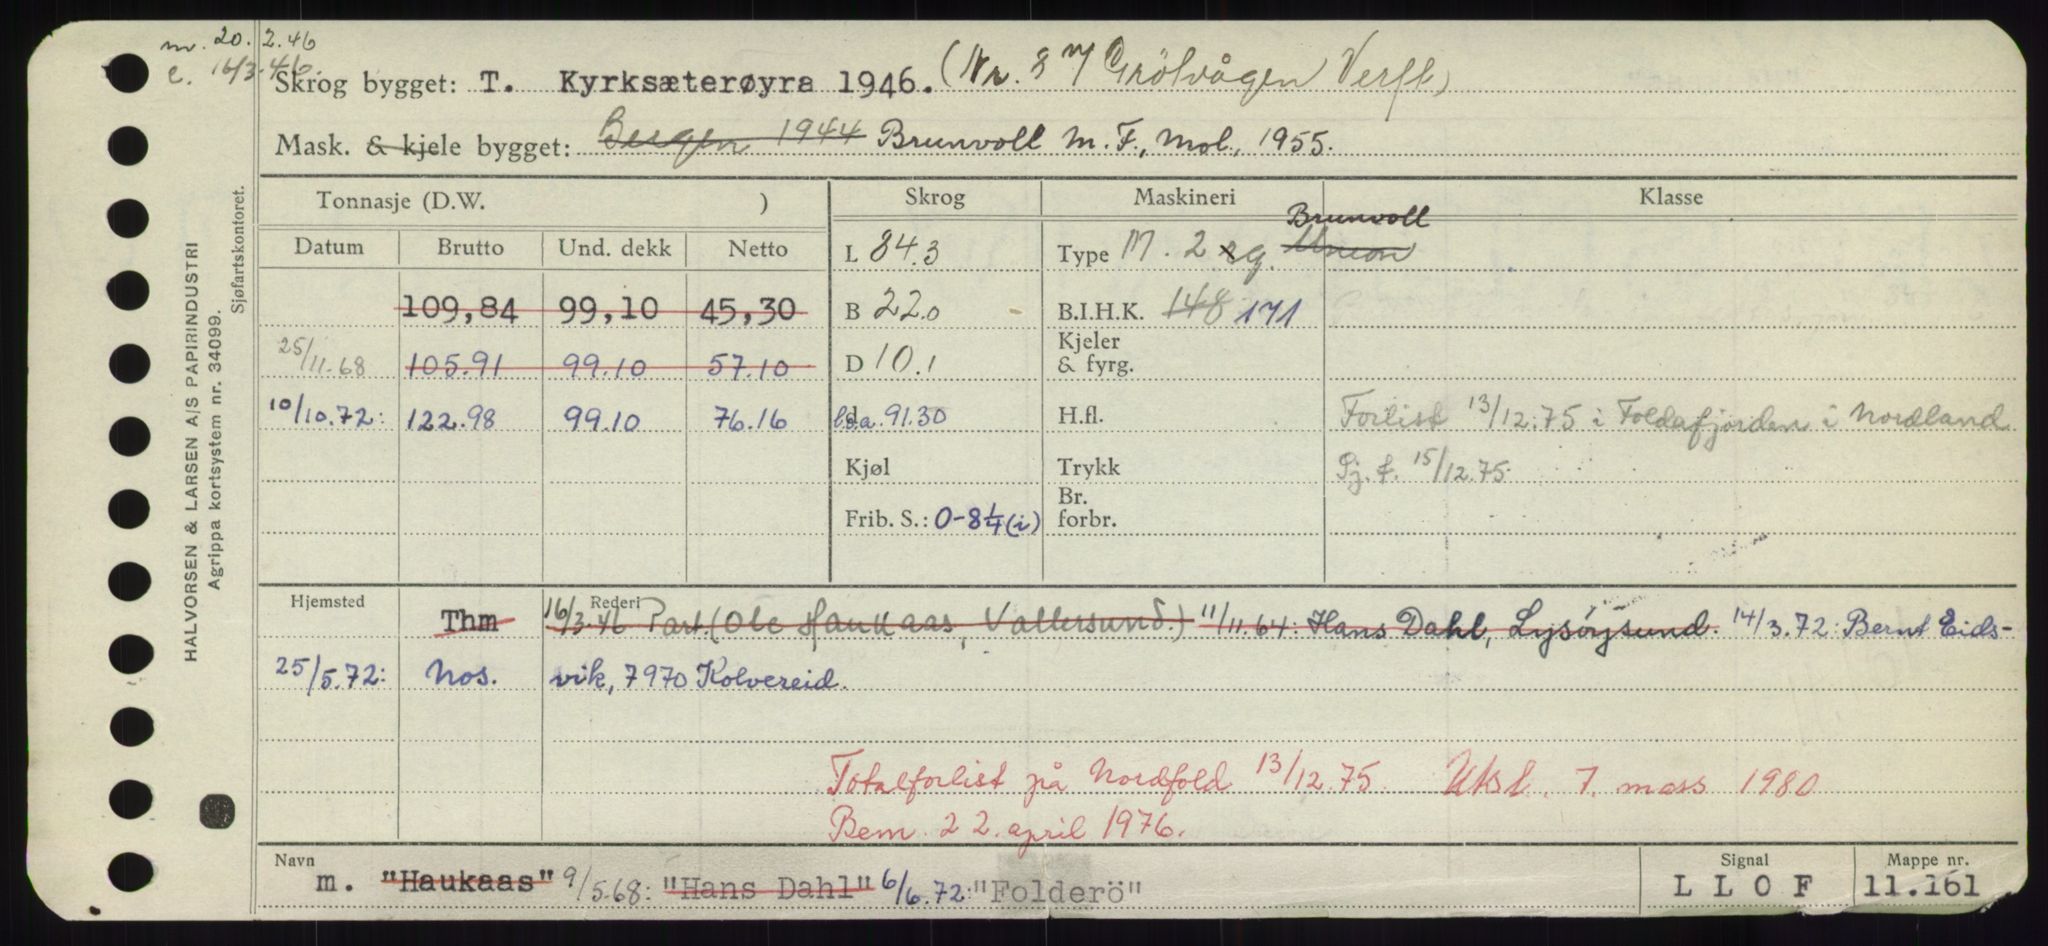 m. 20.2.46
e. 16/3.46
Skrog bygget: T. Kyrksæterøyra 1946. (Nr. 8 Grölvågen Verft)
Mask. & kjele bygget: Bergen 1944 Brunvoll M. F., Mol., 1955.
Tonnasje (D.W. ) Skrog Maskineri Klasse
Datum Brutto Und. dekk Netto
L 84.3 Type M. 2 sg. Union Brunvoll
109,84 99,10 45,30 B 22.0 B.I.H.K. 148 171
25/11.68 105.91 99.10 57.10 D 10.1 Kjeler & fyrg.
10/10.72: 122.98 99.10 76.16 l.o.a. 91.30 H.fl. Forlist 13/12.75 i Foldafjorden i Nordland
Kjøl Trykk Sj. f. 15/12.75
Frib. S.: 0-8 1/4 (i) Br. forbr.
Hjemsted Rederi
Thm 16/3.46 Part. (Ole Haukaas, Vallersund.) 11/11.64: Hans Dahl, Lysøysund. 14/3.72: Bernt Eids-
25/5.72: Nos. vik, 7970 Kolvereid.
Totalforlist på Nordfold 13/12.75. Uksl. 7. mars 1980
Bem. 22. april 1976.
Navn Signal Mappe nr.
m. "Haukaas" 9/5.68: "Hans Dahl" 6/6.72: "Folderö" L L O F 11.161
HALVORSEN & LARSEN A/S PAPIRINDUSTRI
Agrippa kortsystem nr. 34099.
Sjøfartskontoret.